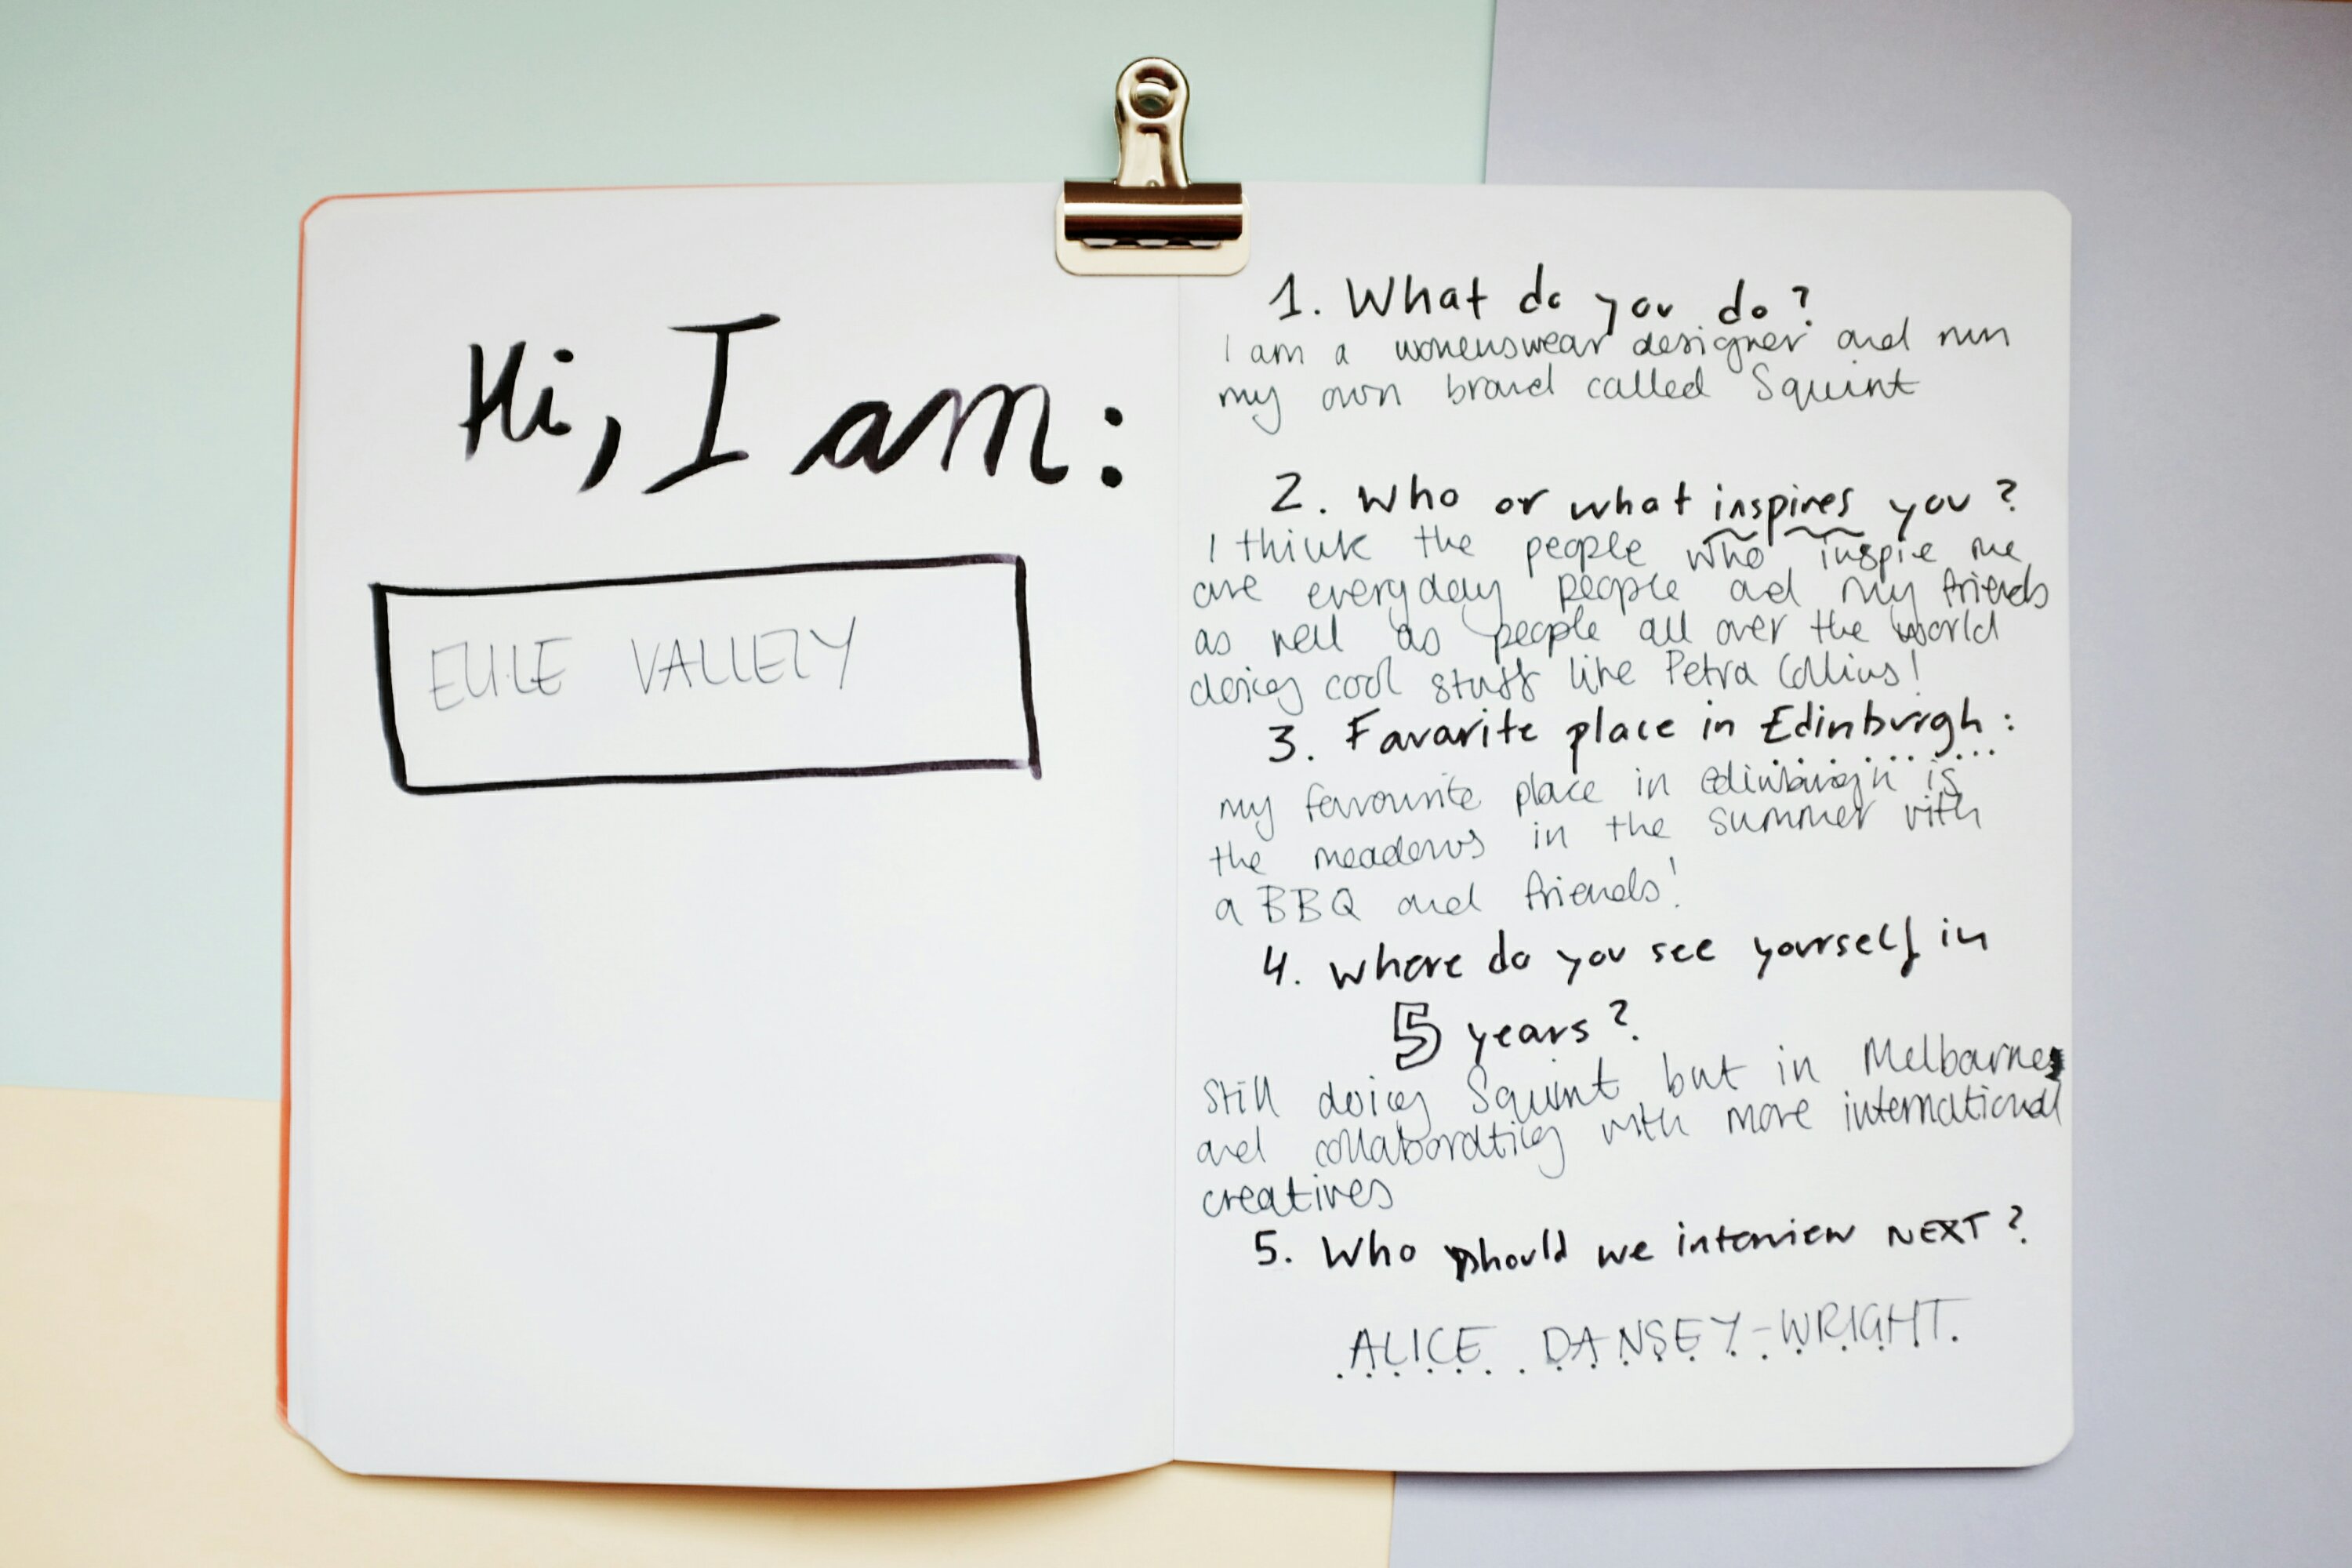 Hi, I am:
VALLELY
1. What do you do?
I am a womenswear designer and run
my own brand called Squint
2. Who or what inspires you?
I think the people who inspie me
are everyday people and my friends
as well as people all over the world
doing cool stuff like Petra Collins!
3. Favarite place in Edinburgh:
my favourite place in Edinburgh is
the meadows in the summer with
a BBQ and friends!
4. where do you see yourself in
5 years?
Still doing Squint but in Melbourne
and collaborating with more international
creatives
5. Who should we interview NEXT?
ALICE DANSEY-WRIGHT.